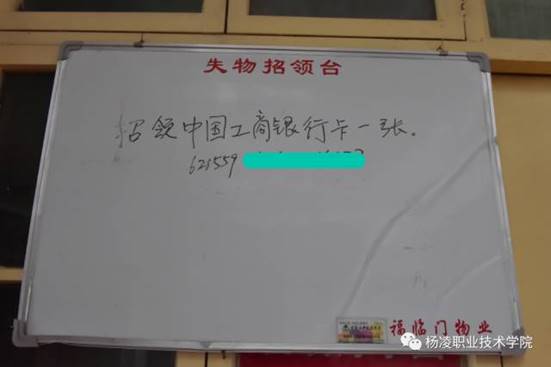 失物招领台
招领中国工商银行卡一张.
621559
福临门物业
杨凌职业技术学院